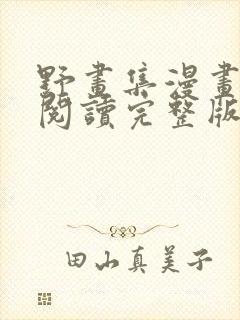 野畫集漫畫
閱讀完整版
田山真美子